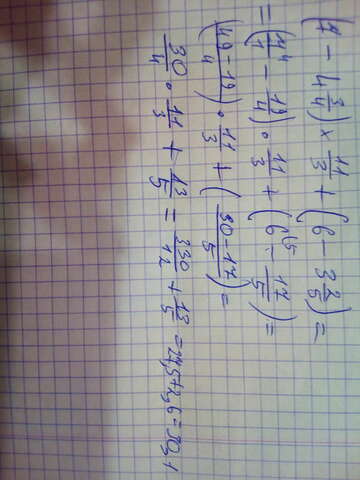 (7 - 4 3/4) × 11/3 + (6 - 3 2/5) =
- 19/4) · 11/3 + (6 - 17/5) =
(49 - 19)/4 · 11/3 + (30 - 17)/5) =
30/4 · 11/3 + 13/5 = 330/12 + 13/5 = 27,5+2,6=30,1